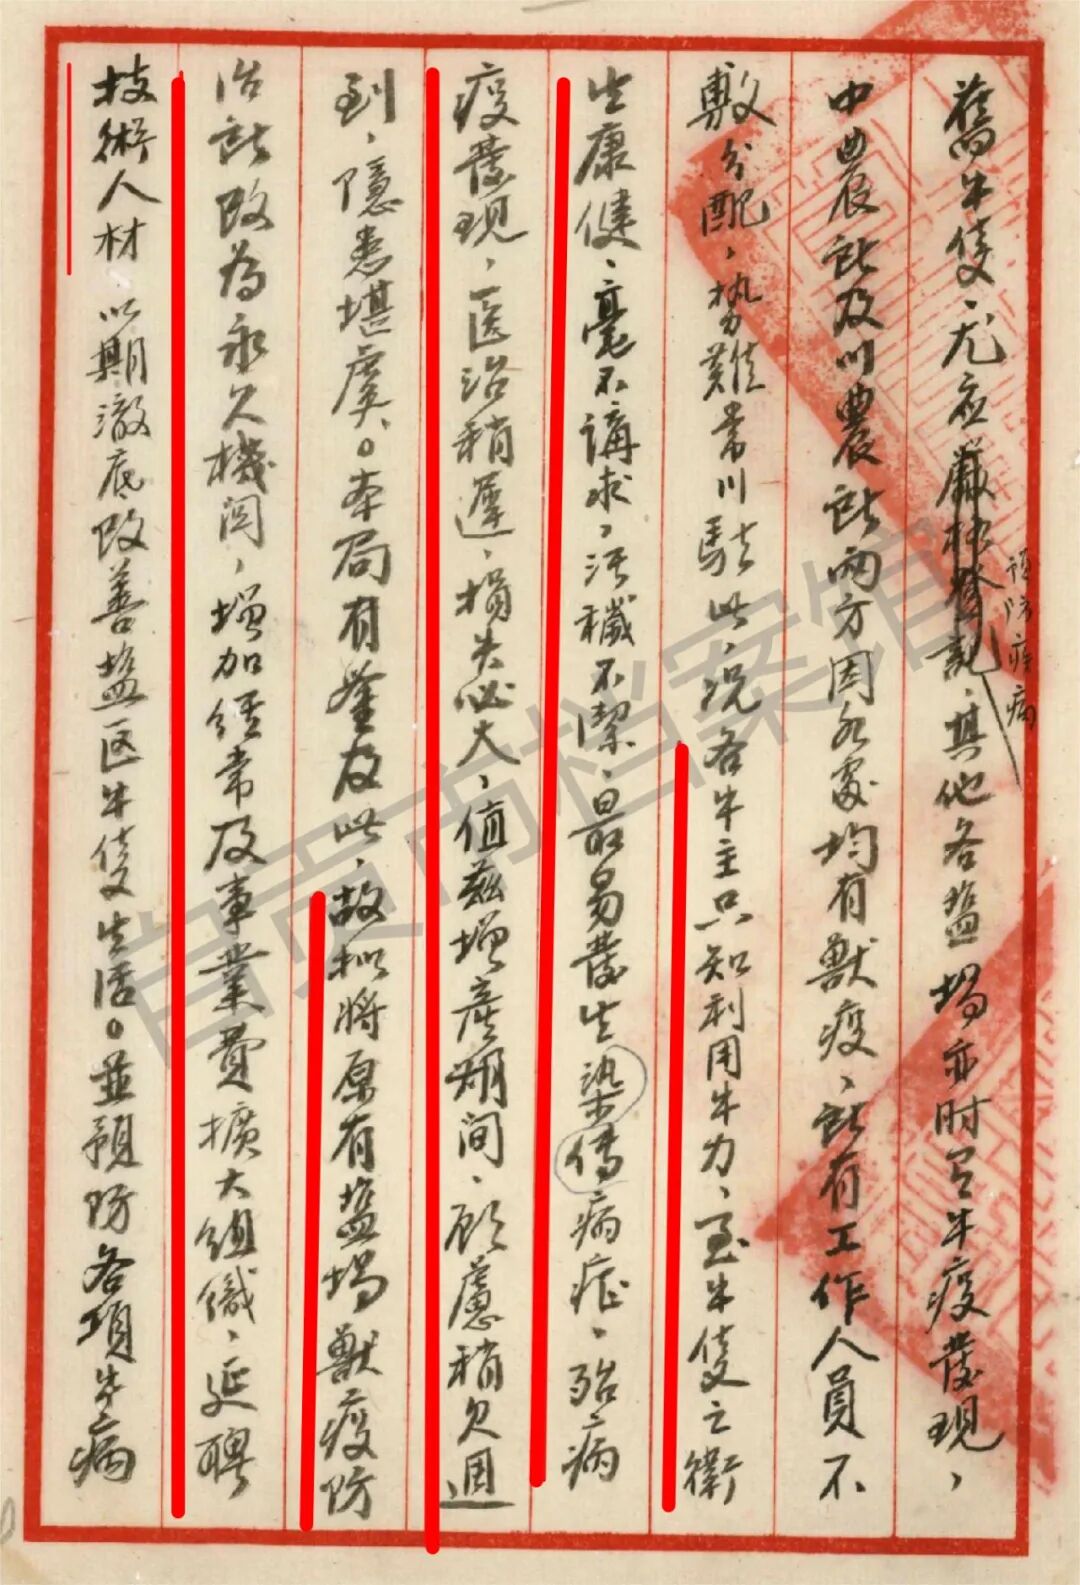 舊牛隻、尤应嚴格登記、其他各盐場亦时有牛疫發現、
預防疾病
中農所及川農所两方因各處均有獸疫、所有工作人员不
敷分配、势難常川駐此、况各牛主只知利用牛力、至牛隻之衛
生康健、毫不講求、污穢不潔、最易發生染传病症、殆病
疫發現、医治稍遲、損失必大、值茲增產期间、顧慮稍欠週
到、隱患堪虞。本局有鉴及此、故拟将原有盐場獸疫防
治所改為永久機関、增加经常及事業費擴大组織、延聘
技術人材 以期澈底改善盐区牛隻生活。並預防各項牛病
自贡市档案馆